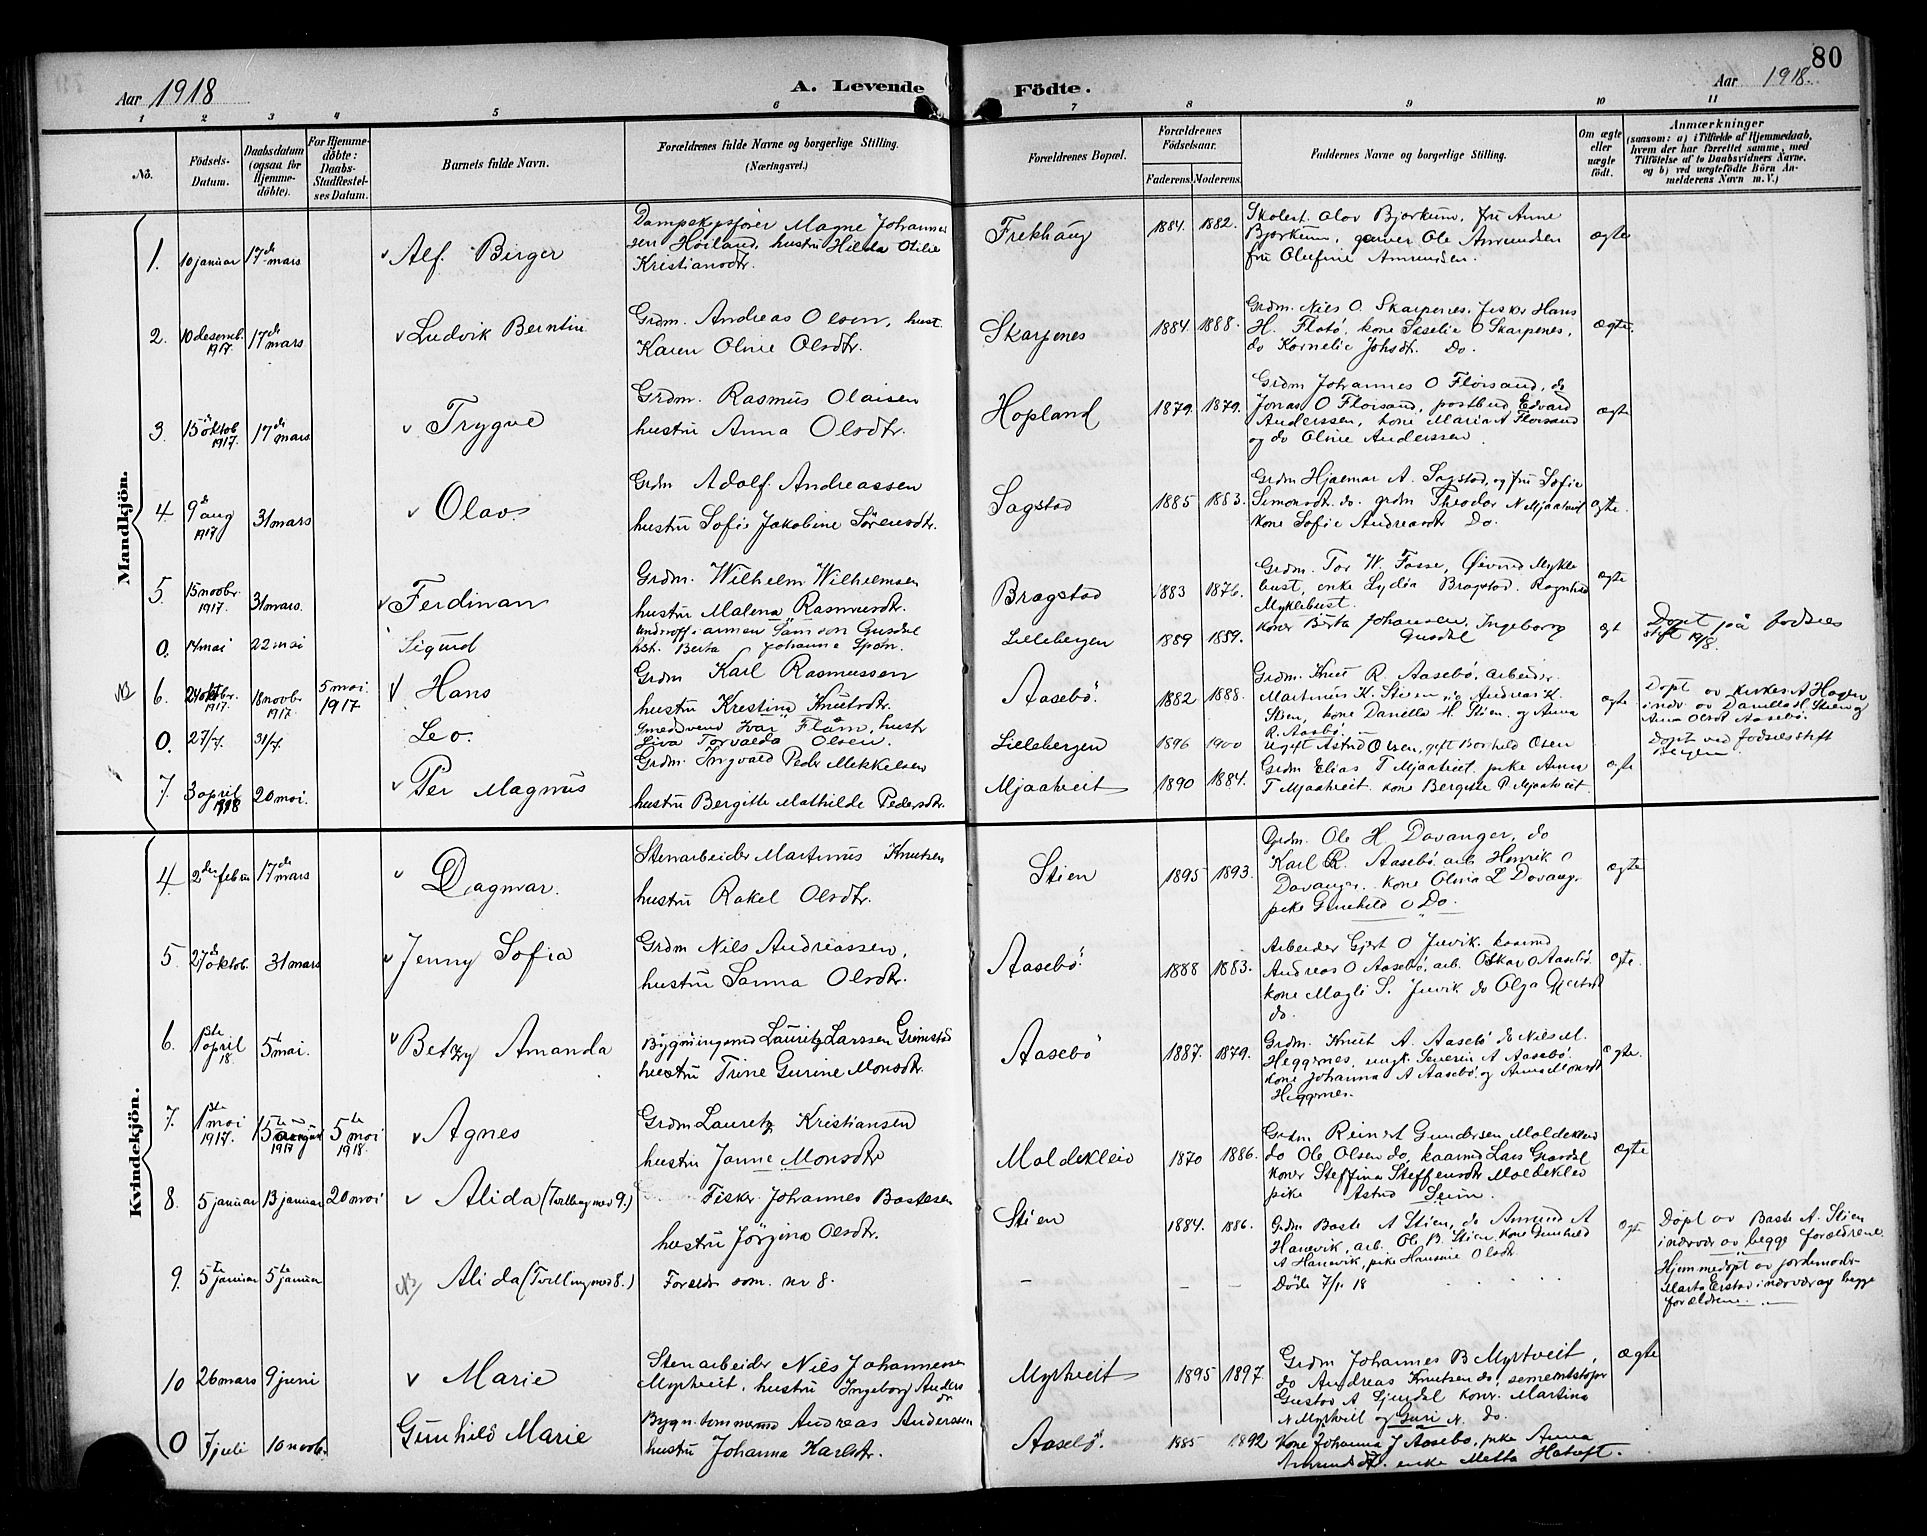 80
Aar 1918
A. Levende Födte.
Aar 1918.
1 2 3 4 5 6 7 8 9 10 11
No.
Födsels-Datum.
Daabsdatum (ogsaa for Hjemme-döbte).
For Hjemme-döbte: Daabs-Stadfæstelses Datum.
Barnets fulde Navn.
Forældrenes fulde Navne og borgerlige Stilling.
(Næringsvei.)
Forældrenes Bopæl.
Forældrenes Födselsaar.
Faderens. Moderens.
Faddernes Navne og borgerlige Stilling.
Om ægte eller uægte födt.
Anmærkninger
(saasom: a) i Tilfælde af Hjemmedaab,
hvem der har forrettet samme, med
Tilföielse af to Daabsvidners Navne,
og b) ved uægtefödte Börn An-
melderens Navn m. V.)
Mandkjön.
1. 10 januar 17de mars Alf Birger
Dampskipsförer Magne Johannes
sen Höiland, hustru Hilda Otilie
Kristiansdtr.
Frekhaug 1884. 1882.
Skolest. Olav Bjorkum, fru Anne
Bjorkum, garver Ole Amundsen
fru Olufine Amundsen.
ægte
2. 10 desemb. 1917. 17de mars Ludvik Berntin
Grdm. Andreas Olsen, hust.
Karen Oline Olsdtr.
Skarpenes 1884 1888.
Grdm. Nils O. Skarpenes, fisker Hans
H. Flatö, kone O Skarpenes,
do Kornelie Johsdt. Do.
ægte.
3. 15de oktob 1917. 17de mars Trygve
Grdm. Rasmus Olaisen
hustru Anna Olsdtr.
Hopland 1879. 1879.
Grdm Johannes O Florsand, do
Jonas O Florsand, postbud Edvard
Anderssen, kone Maria A Florsand
og do Oline Anderssen
ægte
4. 9de aug 1917 31 mars Olav.
Grdm Adolf Andreassen
hustru Sofie Jakobine Sörensdtr.
Sagstad 1885 1883.
Grdm Hjalmar A. Sagstad, og fru Sofie
Simonsdt. do. grdm Theodor N Mjaatveit
kone Sofie Andreasdt Do.
ægte.
5. 15 novbr. 1917. 31 mars. Ferdinan
Grdm. Wilhelm Wilhelmsen
hustru Malena Rasmusdtr.
Bragstad 1883 1876.
Grdm. Tor W. Fosse, Øivind Mykle
bust, enke Lydia Bragstad. Ragnhild
Myklebust.
ægte
0. 14 mai 22 mai Sigurd
Underoff. i armen Samson Gusdal
hst. Berta Johanna Spön.
Lillebergen 1889 1889.
Koner Birta Johansen, Ingeborg
Gusdal
egt
Döpt på Födsels
stift 1918.
NB 6. 24 oktbr. 1917. 18 novbr 1917. 5 mai. 1917 Hans
Grdm Karl Rasmussen
hustru Krestina Knutsdtr.
Aasebö. 1882 1888.
Grdm. Knut R. Aasebö, arbeider
Martinus K. Stien, Andreas K.
Stien, kone Daniella H. Stien. og Anna
R. Aasbö.
ægte
Döpt av A Hagen
indv av Daniella H. Stien og
Anna Olsdt Aasebö.
0. 27/4 31/4 Leo.
Smedsvend Ivar Flåm, hustr
Siva Torvalda Olsen.
Lillebergen 1896 1900
Ugift Astrid Olsen, gift Borhild Osen
Döpt ved Födselsstift
Bergen
7. 3 april 1918 20 mai. Per Magnus
Grdm. Ingvald Peder Mekkelsen
hustru Bergitte Mathilde Pedersdtr.
Mjaatveit 1890 1884.
Grdm Elias T Mjaatveit, pike Anna
T Mjaatveit. kone Bergitte P Mjaatveit.
ægte
Kvindekjön.
4. 2den febru 17de mars Dagmar.
Stenarbeider Martinus Knutsen
hustru Rakel Olsdtr.
Stien 1895 1893.
Grdm. Ole H. Davanger, do
Karl R. Aasebö, arb Henrik O
Davanger. kone Olivia L Davang.
pike Gunhild O Do.
ægte
5. 27de oktob. 31 mars Jenny Sofia
Grdm Nils Andreassen,
hustru Sanna Olsdtr.
Aasebö. 1888 1883.
Arbeider Gjert O Juvik. kaarmd
Andreas O Aasebö, arb. Oskar O Aasebö.
kone Magli S. Juvik, do Olga Gjertsd
do.
ægte.
6. 1ste april 18 5te mai. Betzy Amanda
Bygningsmd Lauritz Larssen Grimstad
hustru Trine Gurine Monsdtr.
Aasebö 1887. 1879.
Grdm. Knut A. Aasebö do Nils M.
Heggernes, ungk. Severin A Aasebö.
kone Johanna A Aasebö, og Anna Monsdt
Heggernes.
ægte.
7. 1ste mai 1917. 15te august 1917 5te mai 1918. Agnes
Grdm Lauretz Kristiansen
hustru Janne Monsdtr
Moldekleiv 1870 1886.
Grdm Reinert Gundersen Moldekleiv
do Ole Olsen do, kaarmd Lars Grasdal
koner Steffina Steffensdtr Moldekleiv
pike Astrid Seim.
ægte
8. 5 januar 13 januar 20 mai Alida (Tvilling med 9.)
Fisker Johannes Bastesen
hustru Jörgina Olsdtr.
Stien 1884. 1886.
Grdm Baste A Stien, do Amund A
Hanevik, arb. Ole B. Stien, kone Gunhild
A Hanevik, pike Hansine Olsdt.
egte
Döpt av Baste A. Stien
i nærvær av begge forældrene.
9. 5te januar 5te januar NB Alida (Tvilling med 8.)
Forældr som. nr 8.
– – –
Döde 7/1. 18
Hjemmedöpt av jordemoder
Marta Erstad i nærvær av begge
forældrene
10 26 mars 9 juni Marie
Stenarbeider Nils Johannessen
Myrtveit, hustru Ingeborg Anders
dtr
Myrtveit 1895 1897.
Grdm Johannes B Myrtveit,
do Andreas Knutsen do, sementstöper
Gustav A Gjerdal koner. Martina
N Myrtveit og Guri N. do.
ægte
0 7 juli 10 novb. Gunhild Marie
Bygn. tömmermd Andreas Anderssen
hustru Johanna Karlsdtr.
Aasebö. 1885 1892
Kone Johanna J Aasebö, pike Anna
Amundsdt. enke Metta Hatvet.